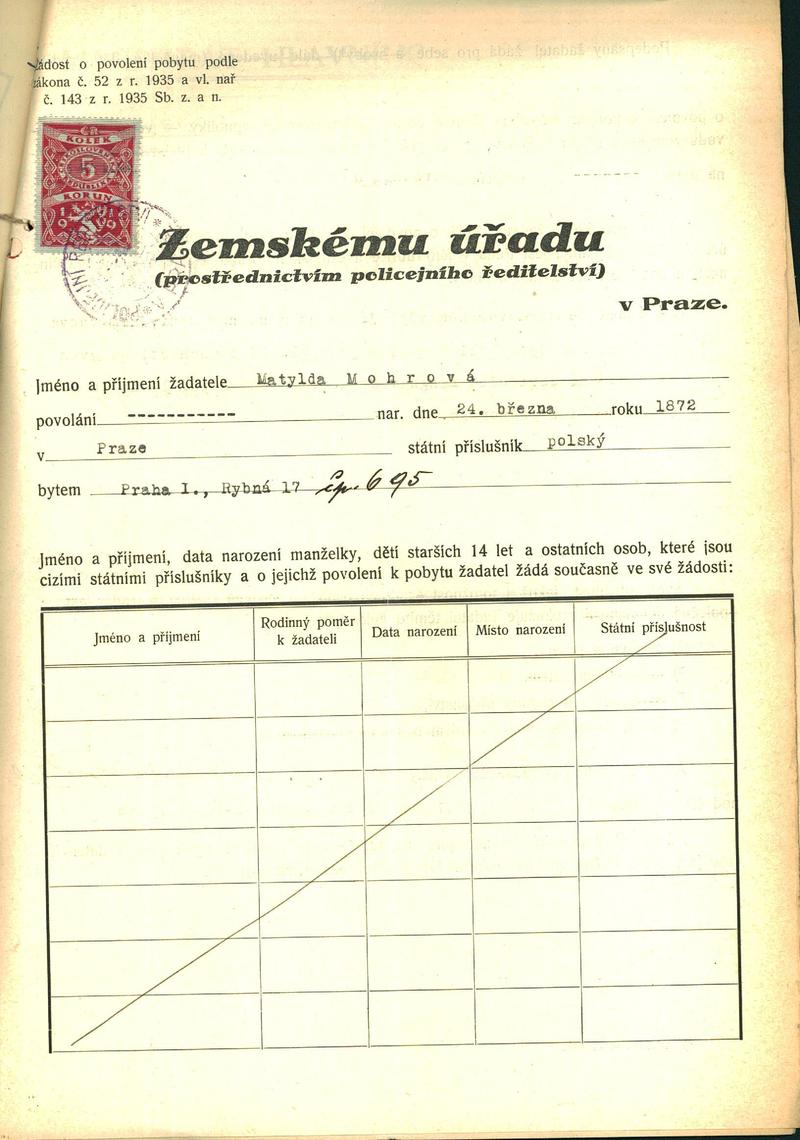 Žádost o povolení pobytu podle
zákona č. 52 z r. 1935 a vl. nař
č. 143 z r. 1935 Sb. z. a n.
KOLEK
5
KORUN
1919
Zemskému úřadu
(prostřednictvím policejního ředitelství)
v Praze.
Jméno a příjmení žadatele Matylda Mohrová
povolání ----------- nar. dne 24. března roku 1872
v Praze státní příslušník polský
bytem Praha I., Rybná 17 čp. 695
Jméno a příjmení, data narození manželky, dětí starších 14 let a ostatních osob, které jsou
cizími státními příslušníky a o jejichž povolení k pobytu žadatel žádá současně ve své žádosti:
Jméno a příjmení Rodinný poměr k žadateli Data narození Místo narození Státní příslušnost